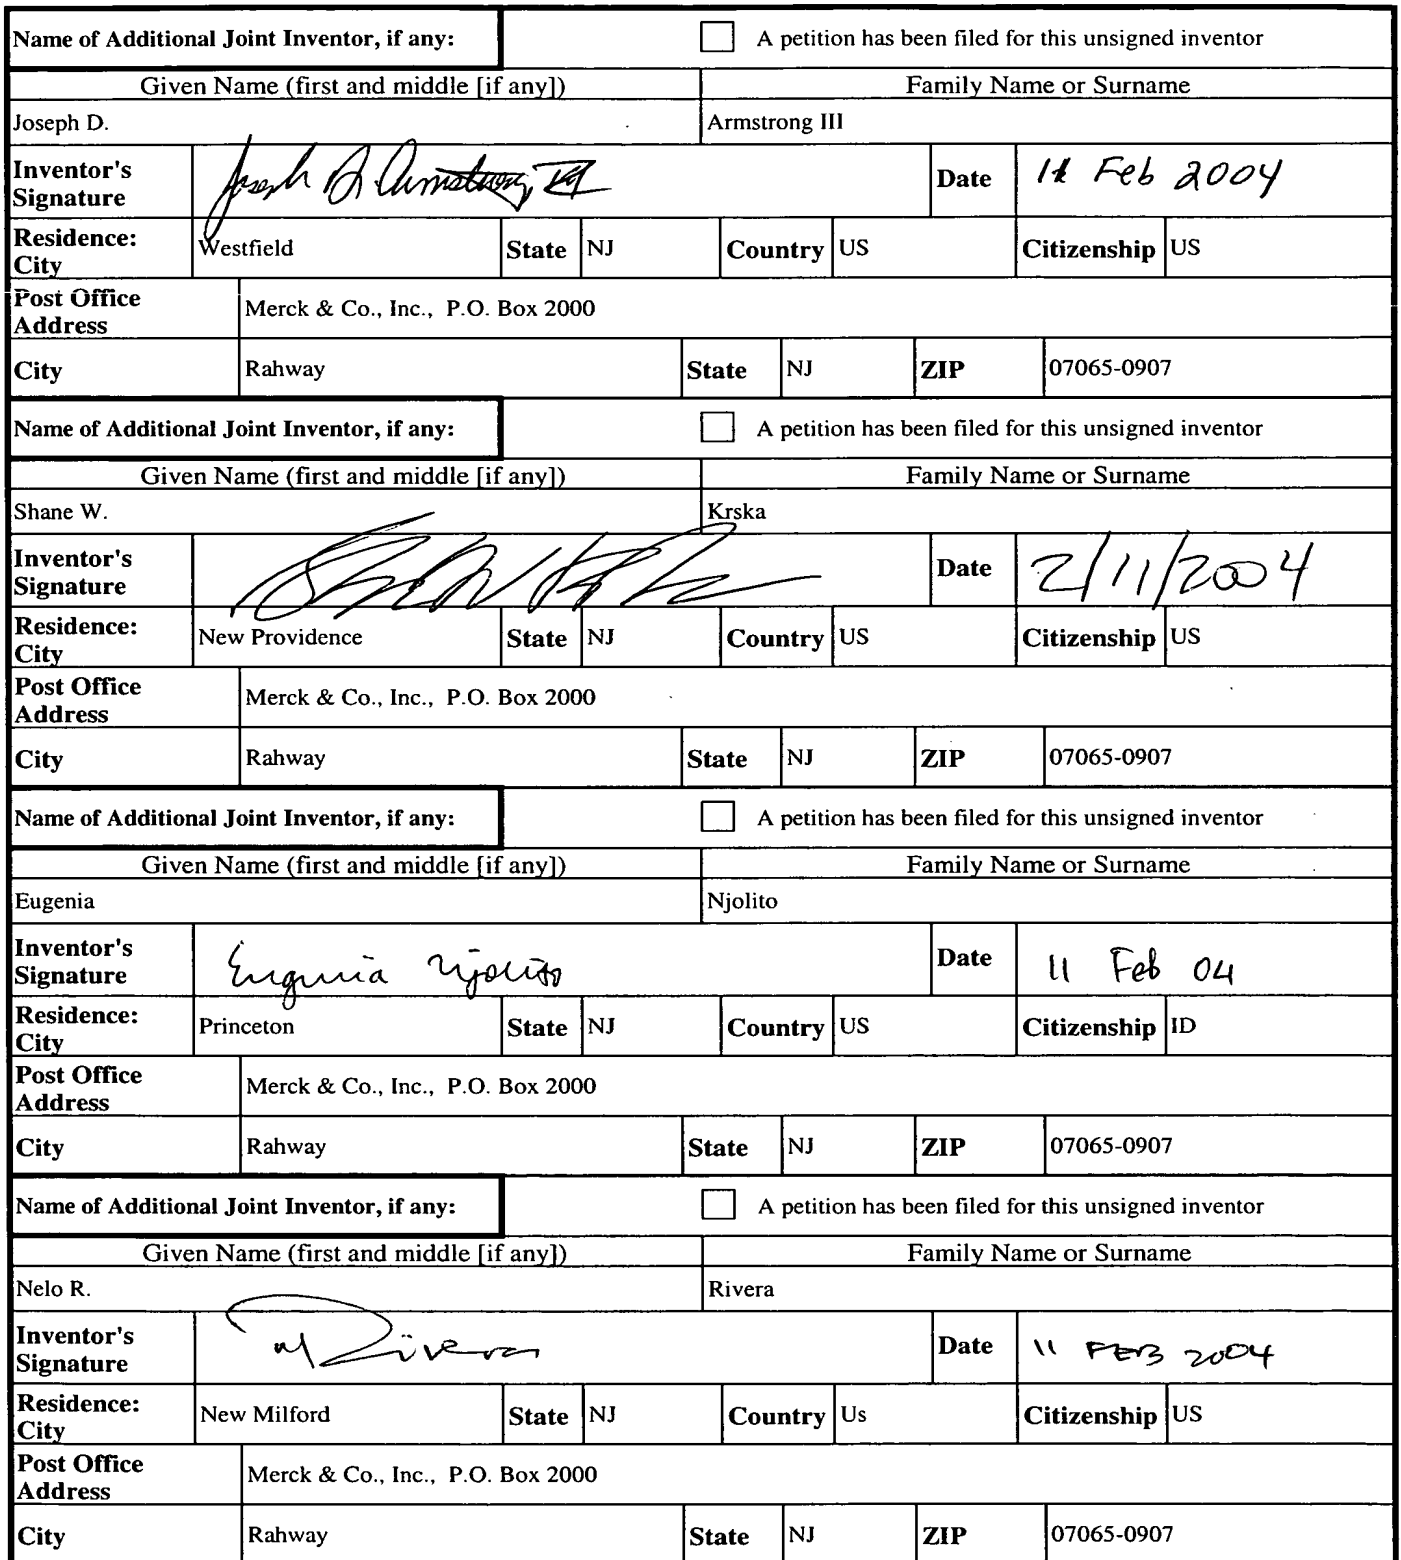 Name of Additional Joint Inventor, if any: A petition has been filed for this unsigned inventor
Given Name (first and middle [if any]) Family Name or Surname
Joseph D. Armstrong III
Inventor's Signature Joseph D. Armstrong, III Date 11 Feb 2004
Residence: City Westfield State NJ Country US Citizenship US
Post Office Address Merck & Co., Inc., P.O. Box 2000
City Rahway State NJ ZIP 07065-0907
Name of Additional Joint Inventor, if any: A petition has been filed for this unsigned inventor
Given Name (first and middle [if any]) Family Name or Surname
Shane W. Krska
Inventor's Signature Date 2/11/2004
Residence: City New Providence State NJ Country US Citizenship US
Post Office Address Merck & Co., Inc., P.O. Box 2000
City Rahway State NJ ZIP 07065-0907
Name of Additional Joint Inventor, if any: A petition has been filed for this unsigned inventor
Given Name (first and middle [if any]) Family Name or Surname
Eugenia Njolito
Inventor's Signature Eugenia Njolito Date 11 Feb 04
Residence: City Princeton State NJ Country US Citizenship ID
Post Office Address Merck & Co., Inc., P.O. Box 2000
City Rahway State NJ ZIP 07065-0907
Name of Additional Joint Inventor, if any: A petition has been filed for this unsigned inventor
Given Name (first and middle [if any]) Family Name or Surname
Nelo R. Rivera
Inventor's Signature NRivera Date 11 FEB 2004
Residence: City New Milford State NJ Country Us Citizenship US
Post Office Address Merck & Co., Inc., P.O. Box 2000
City Rahway State NJ ZIP 07065-0907